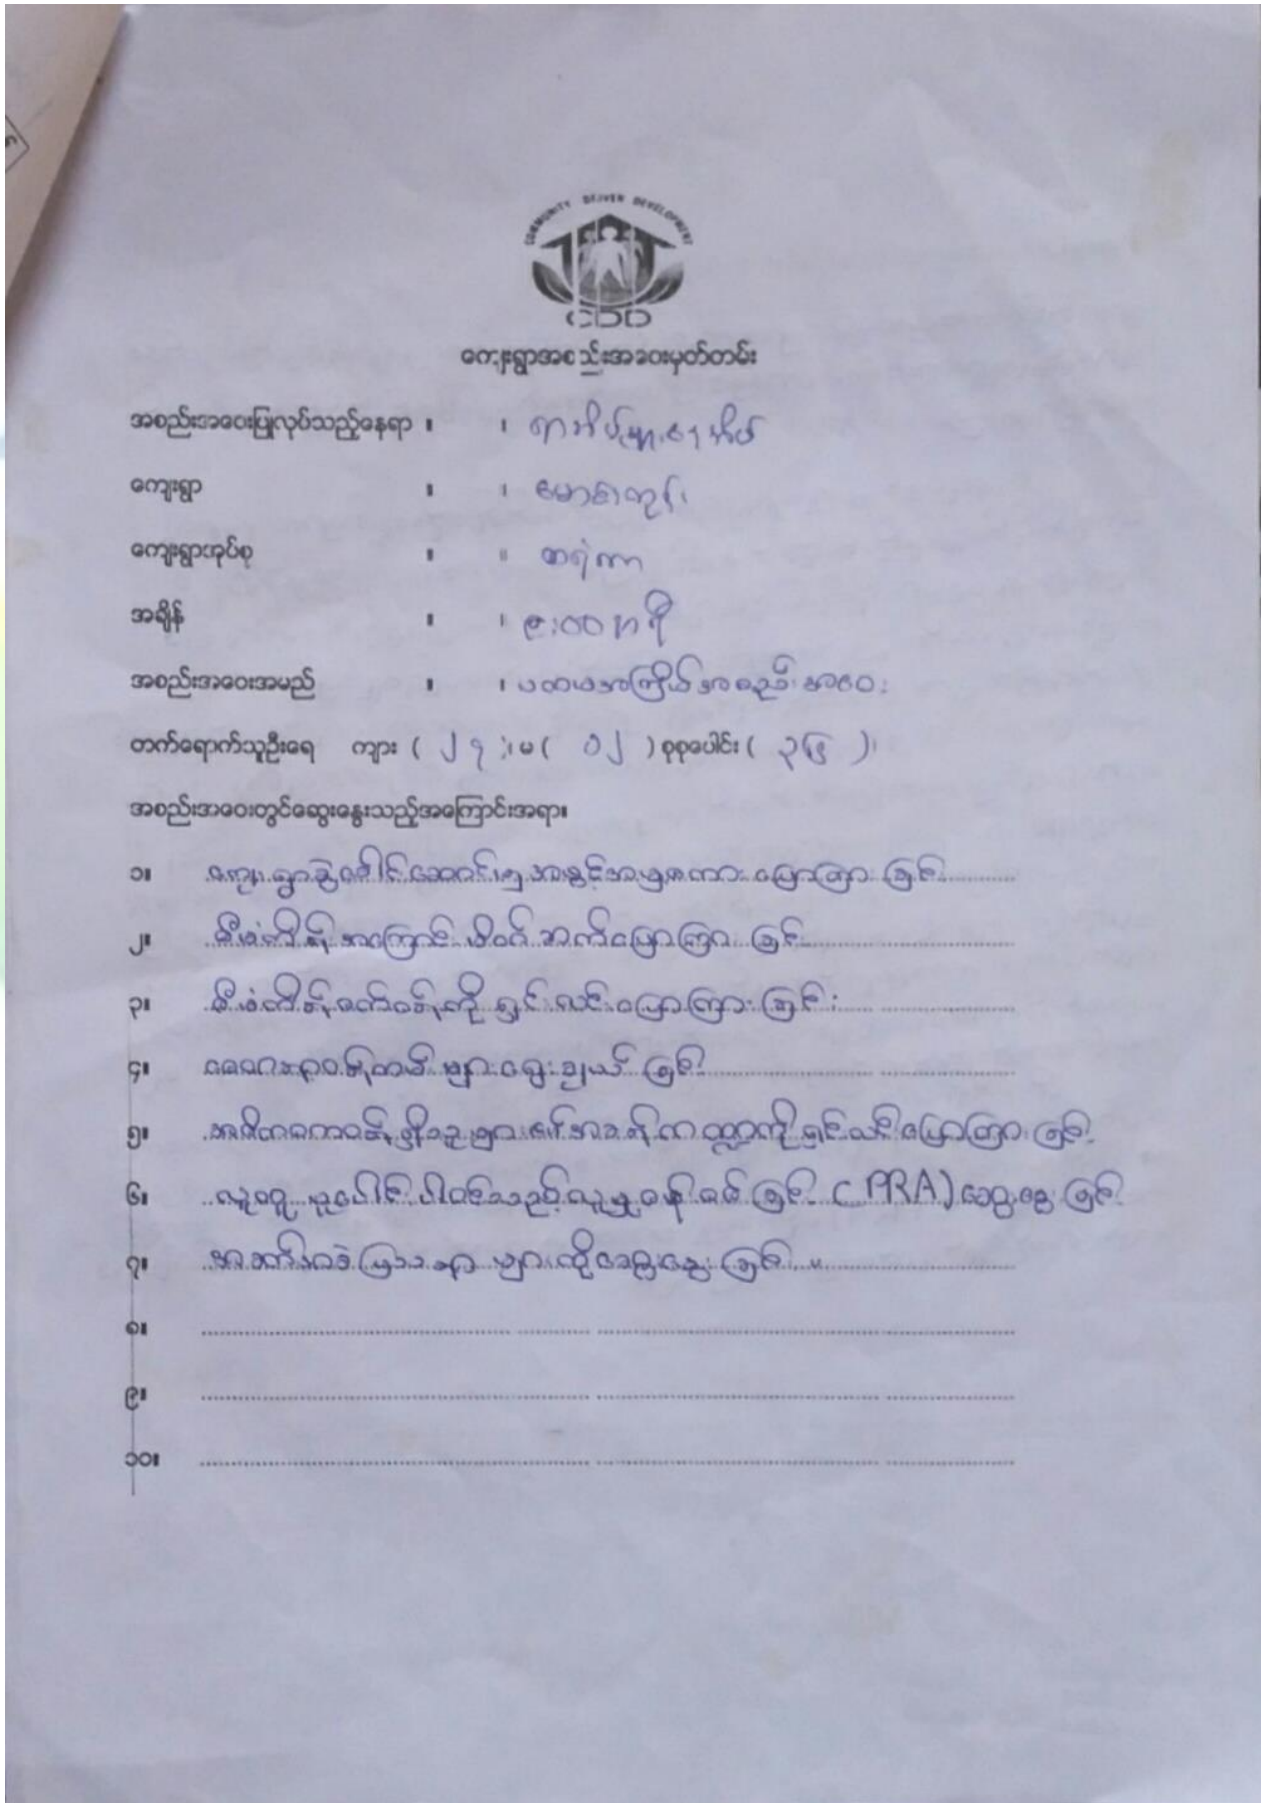 COMMUNITY DRIVEN DEVELOPMENT
CDD
ကျေးရွာအစည်းအဝေးမှတ်တမ်း
အစည်းအဝေးပြုလုပ်သည့်နေရာ ။ ။ ရာအိမ်မှူးနေအိမ်
ကျေးရွာ ။ ။
ကျေးရွာအုပ်စု ။ ။ စာရံကာ
အချိန် ။ ။ ၉:၀၀ နာရီ
အစည်းအဝေးအမည် ။ ။ ပထမအကြိမ်အစည်းအဝေး
တက်ရောက်သူဦးရေ ကျား ( ၂၇ )၊ မ ( ၁၂ ) စုစုပေါင်း ( ၃၉ )၊
အစည်းအဝေးတွင်ဆွေးနွေးသည့်အကြောင်းအရာ။
၁။ ကျေးရွာခွဲခေါင်းဆောင်မှ အဖွင့်အမှာစကား ပြောကြားခြင်း
၂။ စီမံကိန်းအကြောင်း မိတ်ဆက်ပြောကြားခြင်း
၃။ စီမံကိန်းစက်ဝန်းကို ရှင်းလင်းပြောကြားခြင်း
၄။ စေတနာ့ဝန်ထမ်းများရွေးချယ်ခြင်း
၅။ အဓိကတာဝန်ရှိသူများ၏အခန်းကဏ္ဍကိုရှင်းလင်းပြောကြားခြင်း
၆။ လူထု ပူးပေါင်းပါဝင်သည့်လူမှုဆန်းစစ်ခြင်း (PRA) ဆွေးနွေးခြင်း
၇။ အခက်အခဲပြဿနာများကိုဆွေးနွေးခြင်း ။
၈။
၉။
၁၀။